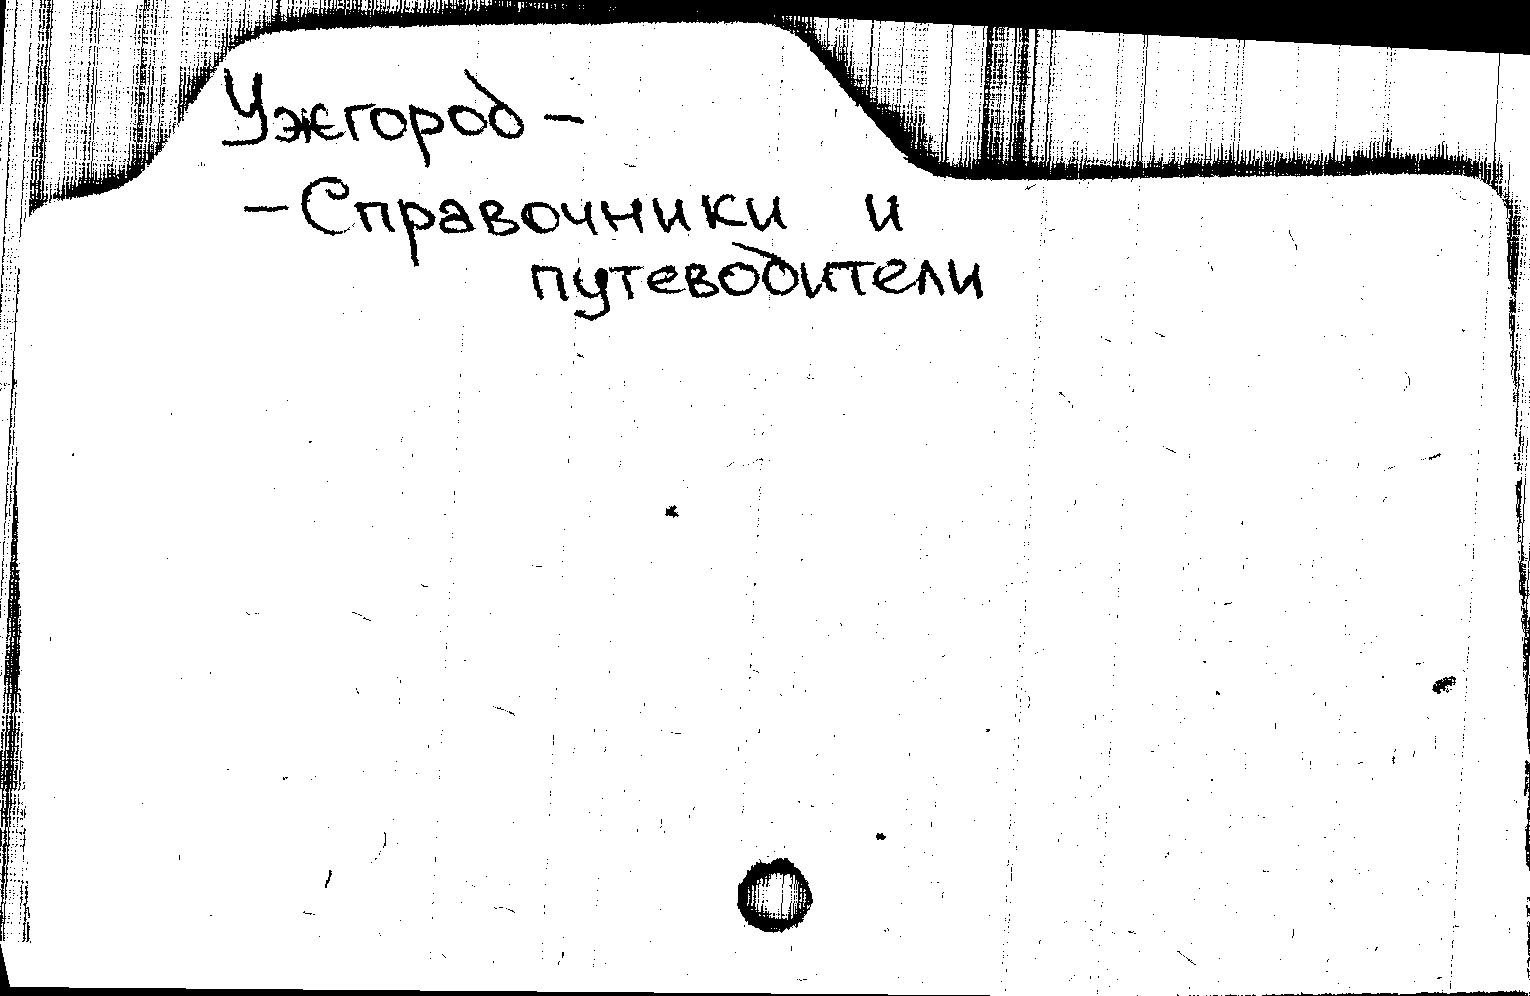 Ужгород –
– Справочники и
путеводители